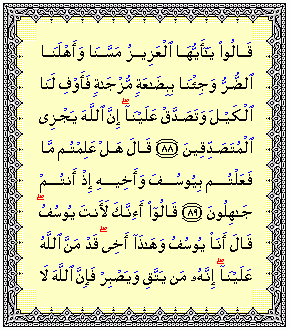 قَالُوا۟ يَـٰٓأَيُّهَا ٱلْعَزِيزُ مَسَّنَا وَأَهْلَنَا
ٱلضُّرُّ وَجِئْنَا بِبِضَـٰعَةٍ مُّزْجَىٰةٍ فَأَوْفِ لَنَا
ٱلْكَيْلَ وَتَصَدَّقْ عَلَيْنَآ ۖ إِنَّ ٱللَّهَ يَجْزِى
ٱلْمُتَصَدِّقِينَ ﴿٨٨﴾ قَالَ هَلْ عَلِمْتُم مَّا
فَعَلْتُم بِيُوسُفَ وَأَخِيهِ إِذْ أَنتُمْ
جَـٰهِلُونَ ﴿٨٩﴾ قَالُوٓا۟ أَءِنَّكَ لَأَنتَ يُوسُفُ ۖ
قَالَ أَنَا۠ يُوسُفُ وَهَـٰذَآ أَخِى ۖ قَدْ مَنَّ ٱللَّهُ
عَلَيْنَآ ۖ إِنَّهُۥ مَن يَتَّقِ وَيَصْبِرْ فَإِنَّ ٱللَّهَ لَا